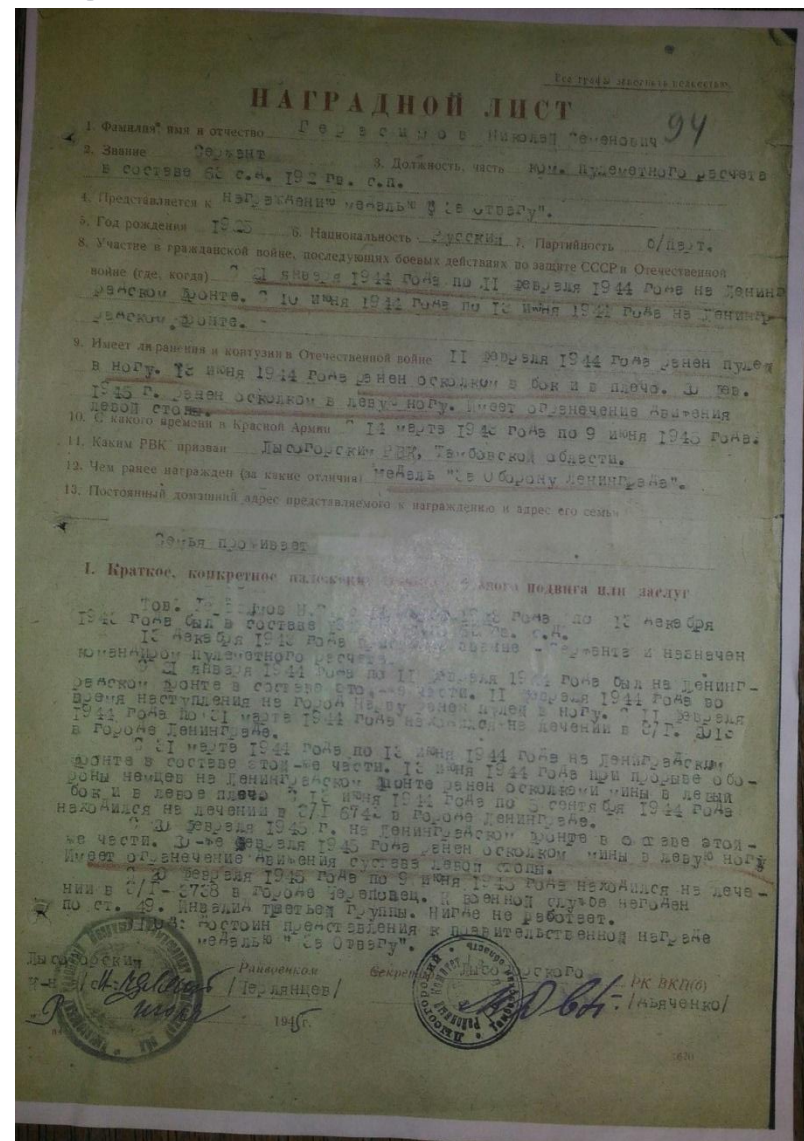 Все графы заполнять полностью
НАГРАДНОЙ ЛИСТ
94
1. Фамилия, имя и отчество Герасимов Николай Семенович
2. Звание Сержант 3. Должность, часть ком. пулеметного расчета
в составе 63 с.д. 192 гв. с.п.
4. Представляется к награждению медалью " За отвагу".
5. Год рождения 1925 6. Национальность Русский 7. Партийность б/парт.
8. Участие в гражданской войне, последующих боевых действиях по защите СССР и Отечественной
войне (где, когда) С 21 января 1944 года по 11 февраля 1944 года на Ленинг
радском фронте. С 10 июня 1944 года по 13 июня 1944 года на Ленинг-
радском фронте. -
9. Имеет ли ранения и контузии в Отечественной войне 11 февраля 1944 года ранен пулей
в ногу. 13 июня 1944 года ранен осколком в бок и в плечо. 20 фев.
1945 г. ранен осколком в левую ногу. Имеет ограначение движения
левой стопы.
10. С какого времени в Красной Армии С 14 марта 1943 года по 9 июня 1945 года.
11. Каким РВК призван Лысогорским РВК, Тамбовской области.
12. Чем ранее награжден (за какие отличия) медаль "За Оборону Ленинграда".
13. Постоянный домашний адрес представляемого к награждению и адрес его семьи
Семья проживает
1. Краткое, конкретное изложение подвига или заслуг
Тов. Герасимов Н.С. года по 13 декабря
1943 года был в составе с.д.
13 декабря 1943 года звание - Сержанта и назначен
командиром пулеметного расчета.
С 21 января 1944 года по 11 февраля 1944 года был на Ленинг-
радском фронте в составе этой-же части. 11 февраля 1944 года во
время наступления на город Нарву ранен пулей в ногу. С 11 февраля
1944 года по 31 марта 1944 года находился на лечении в с/г.
в городе Ленинграде.
С 31 марта 1944 года по 13 июня 1944 года на Ленинградским
фронте в составе этой-же части. 13 июня 1944 года при прорыве обо-
роны немцев на Ленинградском фронте ранен осколками мины в левый
бок и в левое плечо. С 13 июня 1944 года по 5 сентября 1944 года
находился на лечении в с/г 6743 в городе Ленинграде.
С 20 февраля 1945 г. на Ленинградском фронте в составе этой-
же части. 20-же февраля 1945 года ранен осколком мины в левую ногу
Имеет ограначение движения сустава левой стопы.
С 20 февраля 1945 года по 9 июня 1945 года находился на лече-
нии в с/г- 3738 в городе Череповец. К военной службе негоден
по ст. 49. Инвалид третьей группы. Нигде не работает.
Вывод: достоин представления к правительственной награде
медалью " За Отвагу".
Лысогорский Райвоенком Секретарь Лысогорского РК ВКП(б)
/Терлянцев/ /Дьяченко/
194 г.